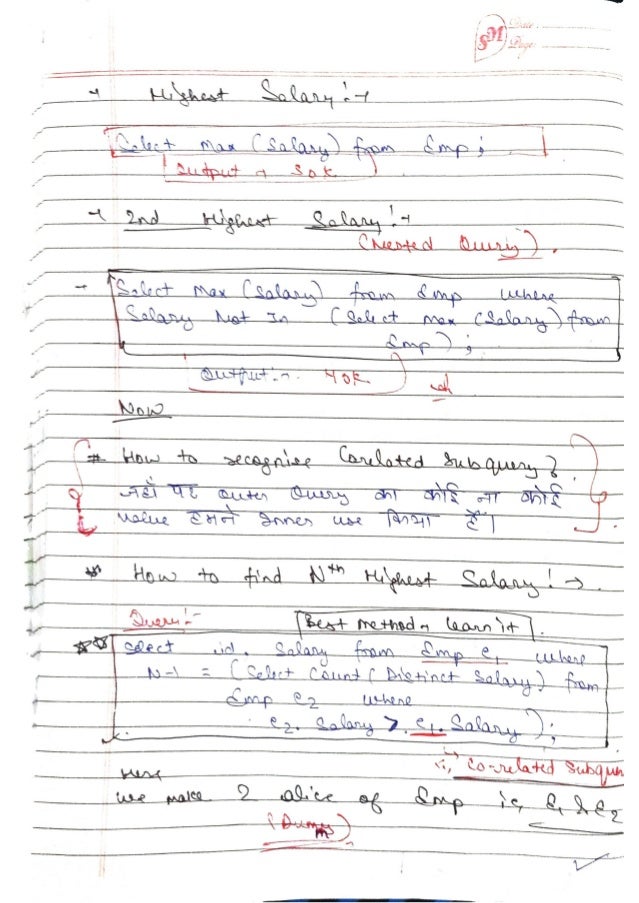 SM Date
Page
→ Highest Salary :→
Select Max (Salary) from Emp ;
Output → 50K
→ 2nd Highest Salary :→
(Nested Query).
→ Select Max (Salary) from Emp where
Salary Not In (Select max (Salary) from
Emp) ;
Output :- 40K
Now
# How to recognise Corelated Subquery ?
जहाँ पर outer Query का कोई ना कोई
value हमने Inner use किया है।
* How to find Nth Highest Salary ! →
Query :- Best method → learn it
Select id, Salary from Emp e1 where
N-1 = (Select Count ( Distinct Salary) from
Emp e2 where
e2. Salary > e1. Salary );
Co-related Subquer
Here
we make 2 alice of Emp ie, e1 & e2